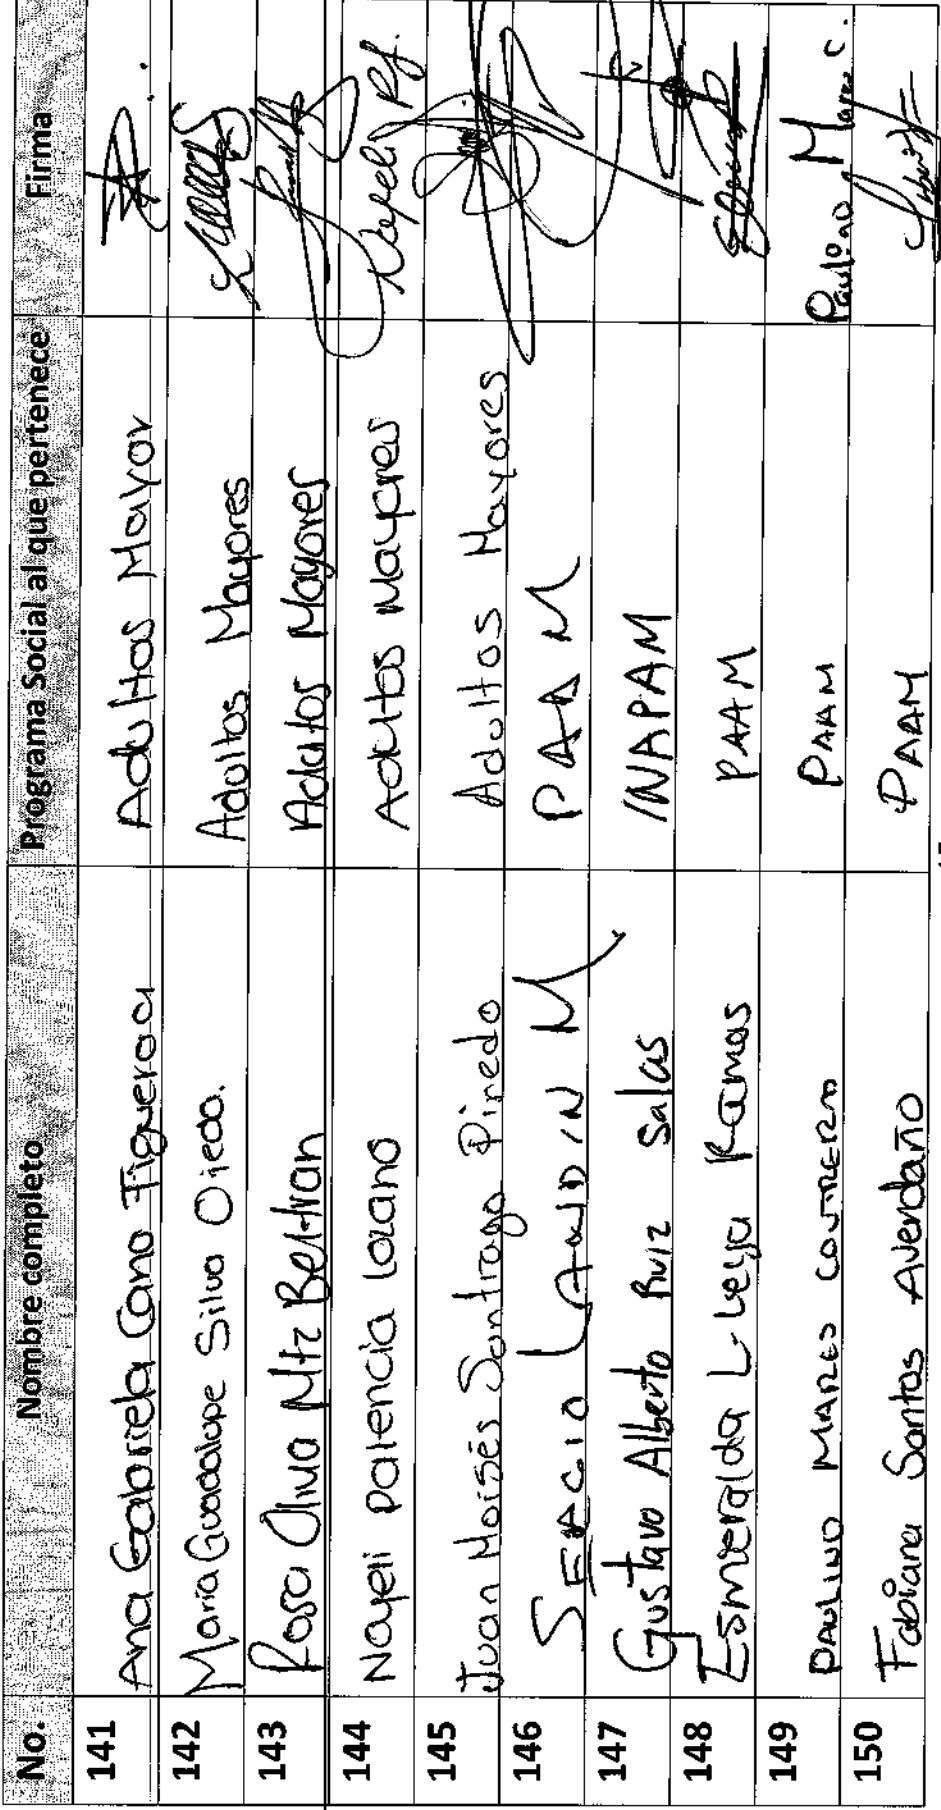 No. Nombre completo Programa Social al que pertenece Firma
141 Ana Gabriela Cano Figueroa Adultos Mayor
142 Maria Guadalupe Silva Ojeda. Adultos Mayores
143 Rosa Oliva Mtz Beltran Adultos Mayores
144 Nayeli Palencia Lozano Adultos Mayores Nayeli
145 Juan Moisés Santiago Pinedo Adultos Mayores
146 LANDIN M PAAM
147 Gustavo Alberto Ruiz Salas INAPAM
148 Esmeralda Leyja Ramos PAAM
149 PAULINO MARES CONTRERAS PAAM Paulino Mares C.
150 Fabiana Santos Avendaño PAAM